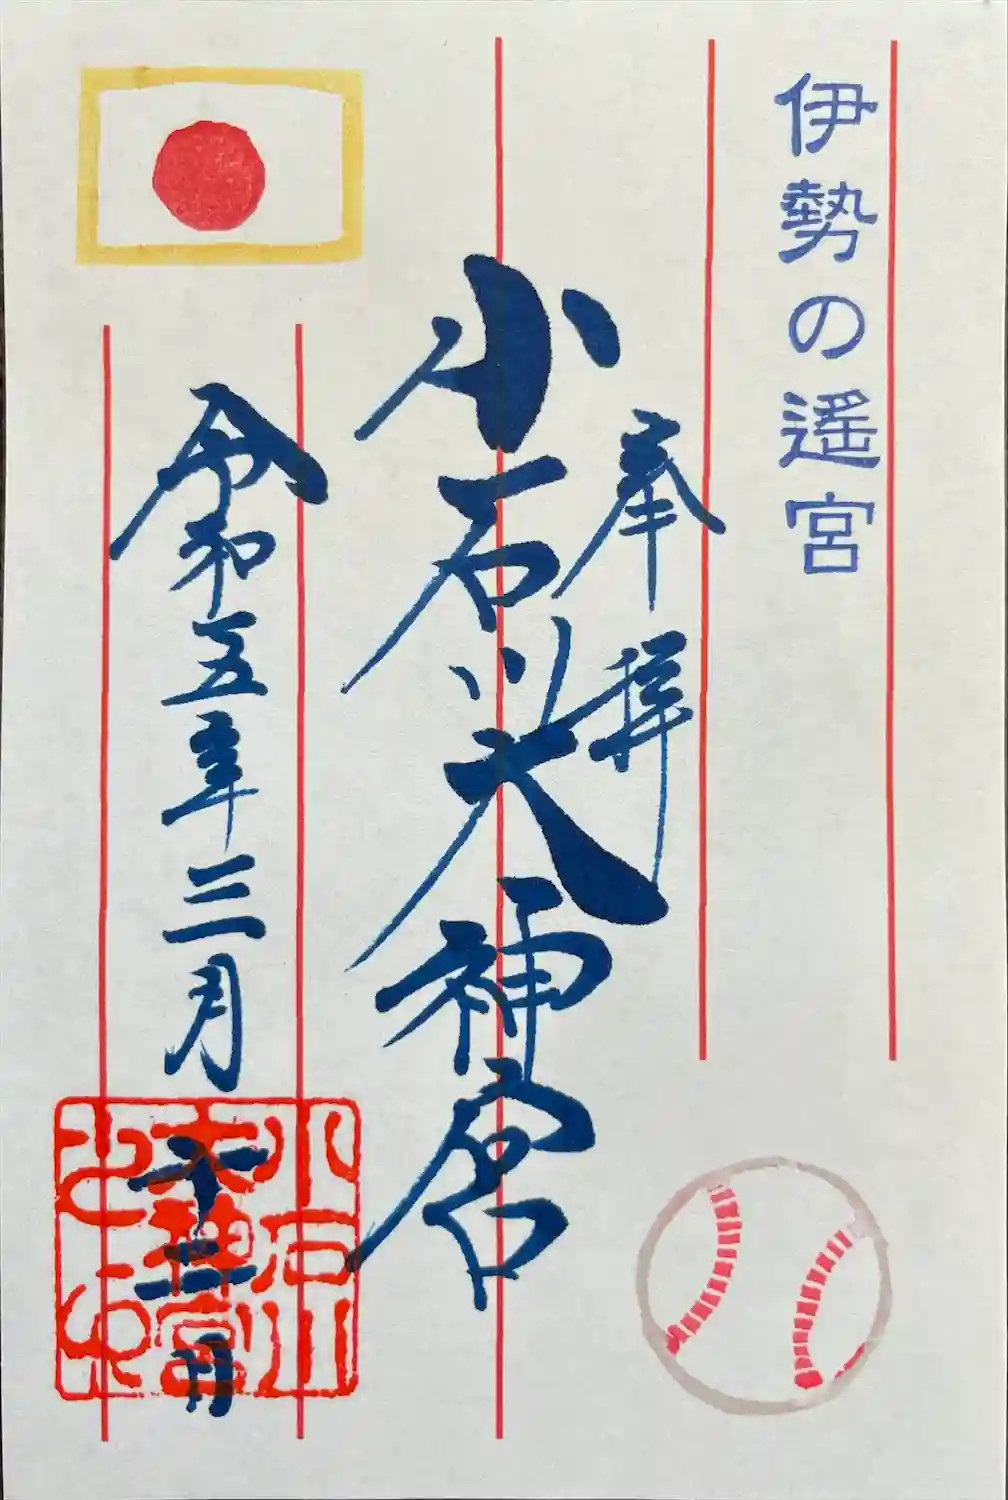 伊勢の遥宮
奉拝
小石川大神宮
令和五年三月十二日
小石川
大神宮
之印